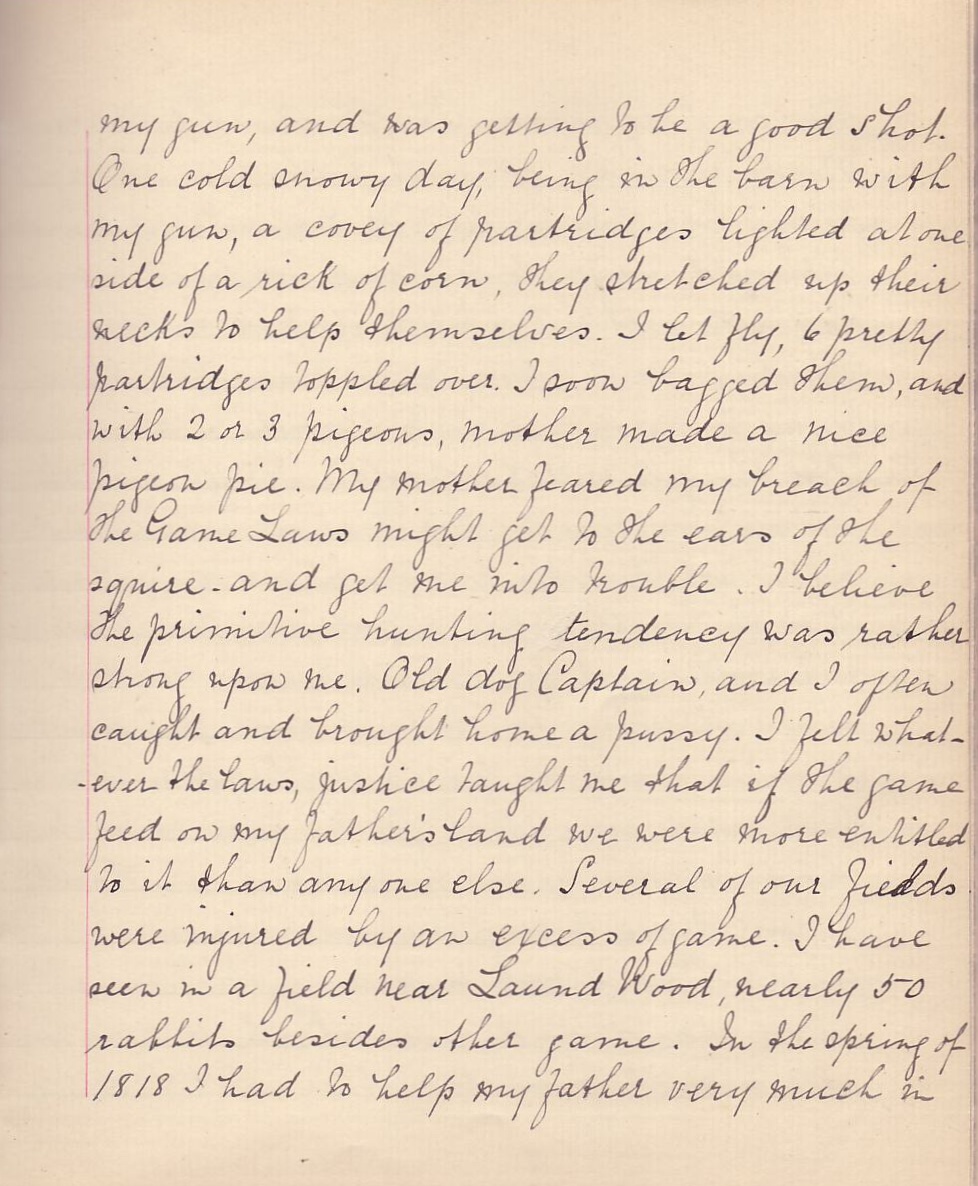 my gun, and was getting to be a good shot.
One cold snowy day, being in the barn with
my gun, a covey of partridges lighted at one
side of a rick of corn, they stretched up their
necks to help themselves. I let fly, 6 pretty
partridges toppled over. I soon bagged them, and
with 2 or 3 pigeons, mother made a nice
pigeon pie. My mother feared my breach of
the Game Laws might get to the ears of the
squire - and get me into trouble. I believe
the primitive hunting tendency was rather
strong upon me. Old dog Captain, and I often
caught and brought home a pussy. I felt what-
-ever the laws, justice taught me that if the game
feed on my father's land we were more entitled
to it than any one else. Several of our fields
were injured by an excess of game. I have
seen in a field near Laund Wood, nearly 50
rabbits besides other game. In the spring of
1818 I had to help my father very much in